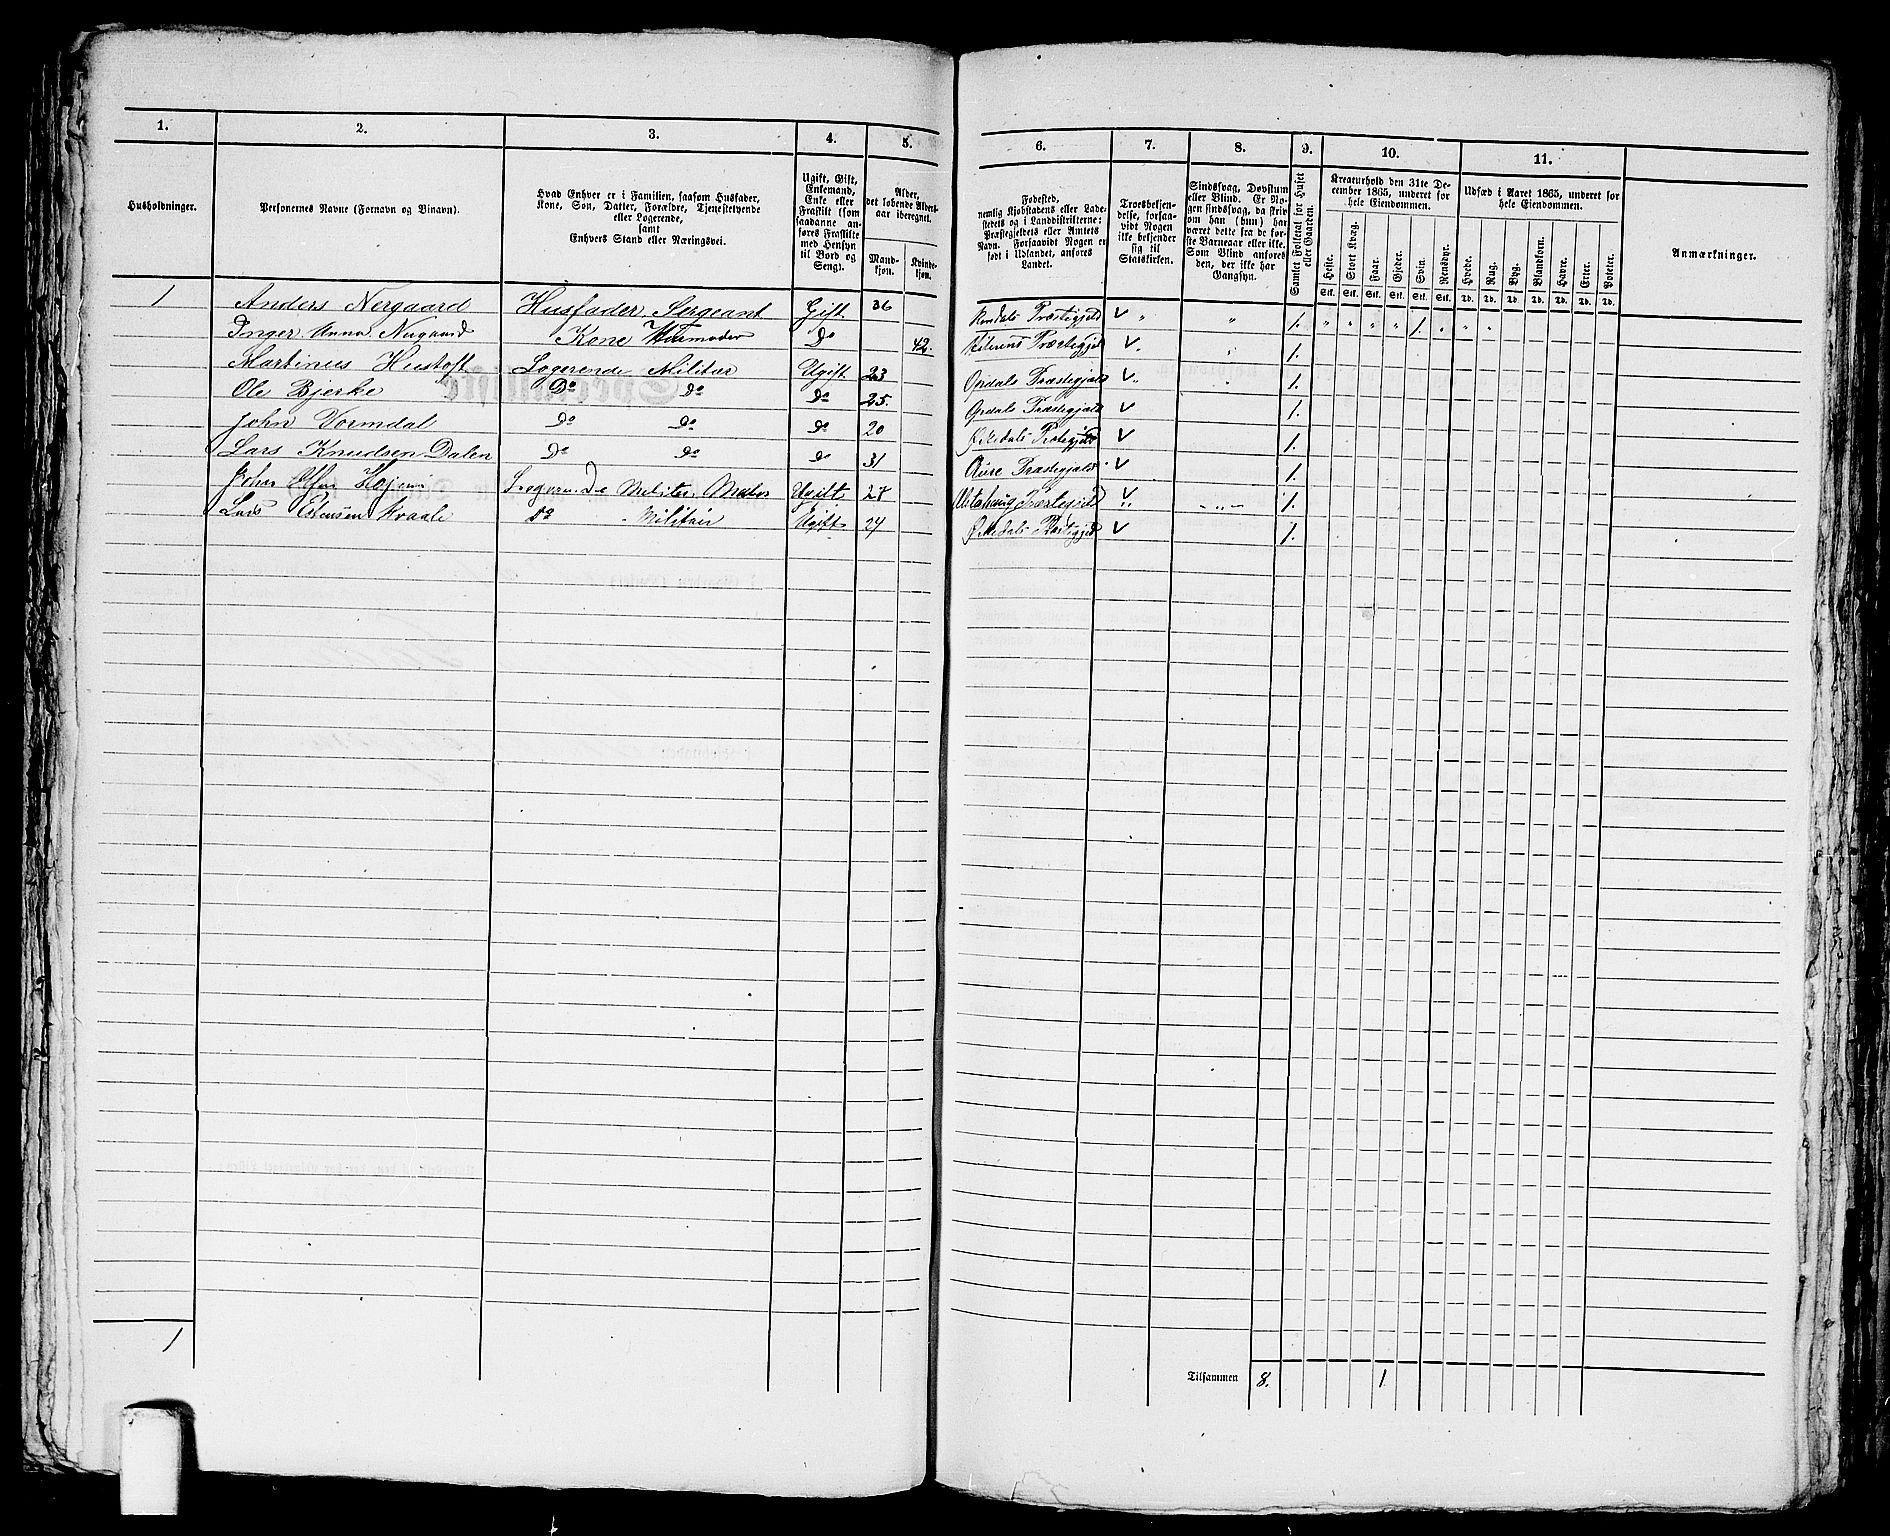 1. 2. 3. 4. 5.
Husholdninger.
Personernes Navne (Fornavn og Binavn).
Hvad Enhver er i Familien, saasom Husfader,
Kone, Søn, Datter, Forældre, Tjenestetyende
eller Logerende,
samt
Enhvers Stand eller Næringsvei.
Ugift, Gift,
Enkemand,
Enke eller
Fraskilt (som
saadanne an-
føres Fraskilte
med Hensyn
til Bord og
Seng).
Alder,
det løbende Alders-
aar iberegnet.
Mand-
kjøn.
Kvinde-
kjøn.
1 Anders Nergaard Husfader, Sergeant Gift 36
Inger Anna Nergaard Kone Do 42.
Martinus Hustoft Logerende Militær Ugift 23
Ole Bjerke Do Do Do 25.
John Vormdal Do Do Do 20
Lars Knudsen Dalen Do Do Do 31
Ugift 27
Lars Kvaale Do Militair Ugift 24
1
6. 7. 8. 9. 10. 11.
Fødested,
nemlig Kjøbstadens eller Lade-
stedets og i Landdistrikterne:
Præstegjeldets eller Amtets
Navn. Forsaavidt Nogen er
født i Udlandet, anføres
Landet.
Troesbekjen-
delse, forsaa-
vidt Nogen
ikke bekjender
sig til
Statskirken.
Sindssvag, Døvstum
eller Blind. Er No-
gen sindssvag, da skriv
om han (hun) har
været dette fra de før-
ste Barneaar eller ikke.
Som Blind anføres
den, der ikke har
Gangsyn.
Samlet Folketal for Huset
eller Gaarden.
Kreaturhold den 31te De-
cember 1865, underet for
hele Eiendommen.
Heste. Stort Kvæg. Faar. Gjeder. Svin. Rensdyr.
Stk. Stk. Stk. Stk. Stk. Stk.
Udsæd i Aaret 1865, underet for
hele Eiendommen.
Hvede. Rug. Byg. Blandkorn. Havre. Erter. Poteter.
Td. Td. Td. Td. Td. Td. Td.
Anmærkninger.
Præstegjeld √ " " 1. " " " " 1. " " "
Præstegjeld √ " " 1.
Opdals Præstegjeld √ " 1.
Opdals Præstegjeld √ 1.
Ørkedals Præstegjeld √ 1.
Aure Præstegjeld √ 1.
Alstahaug Præstegjeld √ " 1.
Ørkedals Præstegjeld √ 1.
Tilsammen 8. 1